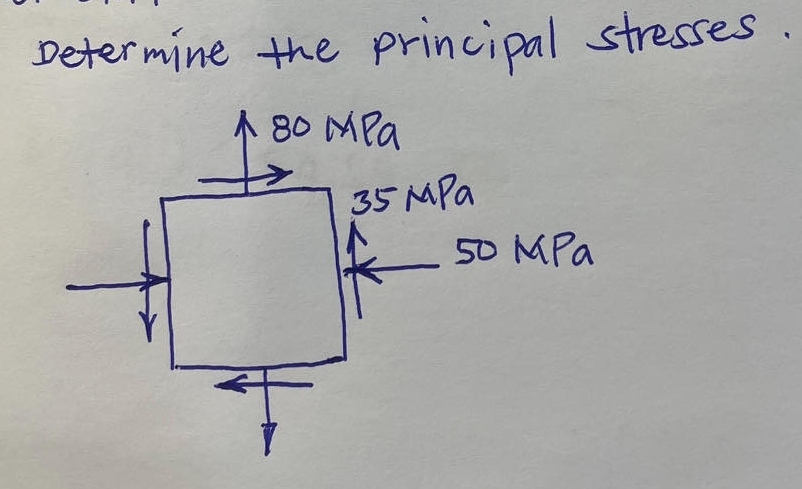 Determine the principal stresses.
80 MPa
35 MPa
50 MPa